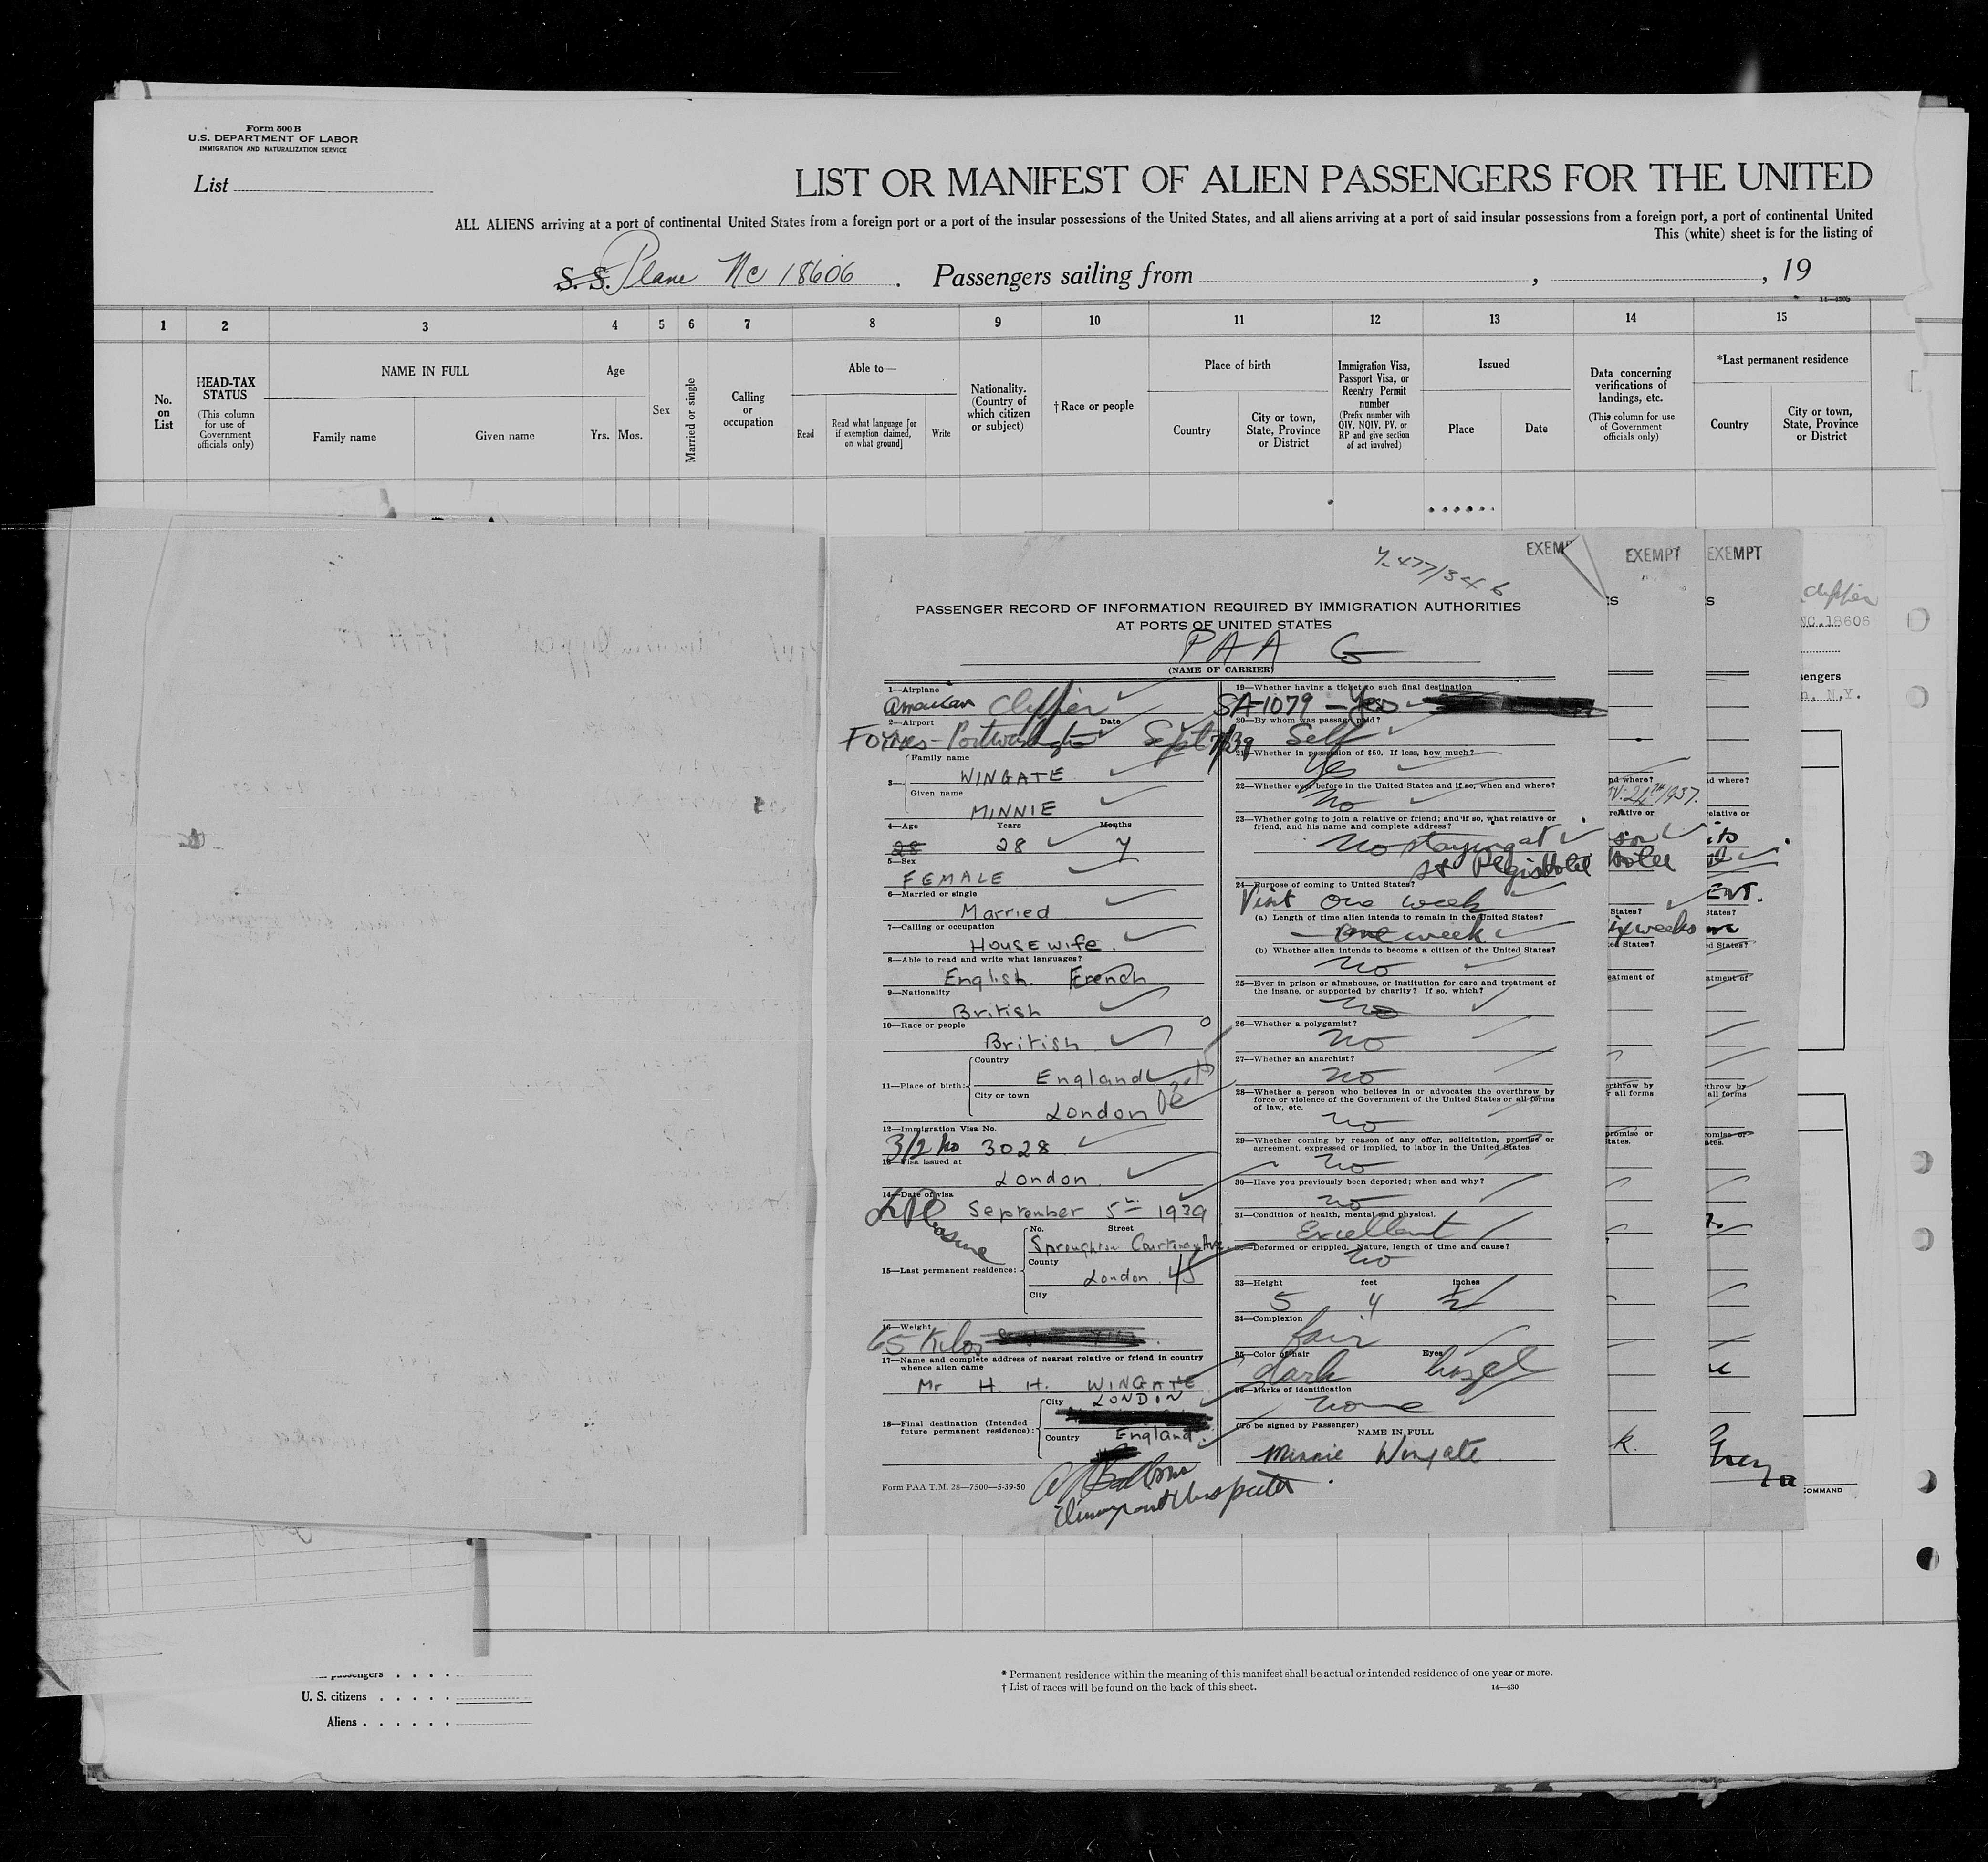 Form 500 B
U.S. DEPARTMENT OF LABOR
IMMIGRATION AND NATURALIZATION SERVICE
List
LIST OR MANIFEST OF ALIEN PASSENGERS FOR THE UNITED
ALL ALIENS arriving at a port of continental United States from a foreign port or a port of the insular possessions of the United States, and all aliens arriving at a port of said insular possessions from a foreign port, a port of continental United
This (white) sheet is for the listing of
S. S. Plane NC 18606 . Passengers sailing from , , 19
14—430b
1 2 3 4 5 6 7 8 9 10 11 12 13 14 15
No. on List
HEAD-TAX STATUS
(This column for use of Government officials only)
NAME IN FULL
Family name Given name
Age
Yrs. Mos.
Sex
Married or single
Calling or occupation
Able to—
Read
Read what language [or if exemption claimed, on what ground]
Write
Nationality. (Country of which citizen or subject)
†Race or people
Place of birth
Country
City or town, State, Province or District
Immigration Visa, Passport Visa, or Reentry Permit number
(Prefix number with QIV, NQIV, PV, or RP and give section of act involved)
Issued
Place Date
Data concerning verifications of landings, etc.
(This column for use of Government officials only)
*Last permanent residence
Country
City or town, State, Province or District
EXEMPT EXEMPT
PASSENGER RECORD OF INFORMATION REQUIRED BY IMMIGRATION AUTHORITIES
AT PORTS OF UNITED STATES
PAA G
(NAME OF CARRIER)
1—Airplane
American Clipper
2—Airport Date
Foynes - Portwashington Sept 7/39
3— Family name
WINGATE
Given name
MINNIE
4—Age Years Months
28 28 7
5—Sex
FEMALE
6—Married or single
Married
7—Calling or occupation
Housewife.
8—Able to read and write what languages?
English. French
9—Nationality
British
10—Race or people
British
11—Place of birth:
Country
England
City or town
London
12—Immigration Visa No.
3/2 No 3028
13—Visa issued at
London.
14—Date of visa
September 5th 1939
15—Last permanent residence:
No. Street
Sproughton Courtenay Ave.
County
London.
City
16—Weight
65 Kilos
17—Name and complete address of nearest relative or friend in country whence alien came
Mr H. H. WINGATE
18—Final destination (Intended future permanent residence):
City LONDON
Country England.
Form PAA T.M. 28—7500—5-39-50
19—Whether having a ticket to such final destination
SA-1079 - Yes
20—By whom was passage paid?
Self
21—Whether in possession of $50. If less, how much?
Yes
22—Whether ever before in the United States and if so, when and where?
No
23—Whether going to join a relative or friend; and if so, what relative or friend, and his name and complete address?
No staying at
St Regis Hotel
24—Purpose of coming to United States?
Visit One week
(a) Length of time alien intends to remain in the United States?
One week
(b) Whether alien intends to become a citizen of the United States?
No
25—Ever in prison or almshouse, or institution for care and treatment of the insane, or supported by charity? If so, which?
No
26—Whether a polygamist?
No
27—Whether an anarchist?
No
28—Whether a person who believes in or advocates the overthrow by force or violence of the Government of the United States or all forms of law, etc.
No
29—Whether coming by reason of any offer, solicitation, promise or agreement, expressed or implied, to labor in the United States.
No
30—Have you previously been deported; when and why?
No
31—Condition of health, mental and physical.
Excellent
32—Deformed or crippled. Nature, length of time and cause?
No
33—Height feet inches
5 4 ½
34—Complexion
fair
35—Color of hair Eyes
dark hazel
36—Marks of identification
None
(To be signed by Passenger)
NAME IN FULL
Minnie Wingate
NC.18606
N.Y.
COMMAND
U. S. citizens
Aliens
* Permanent residence within the meaning of this manifest shall be actual or intended residence of one year or more.
† List of races will be found on the back of this sheet.
14—430